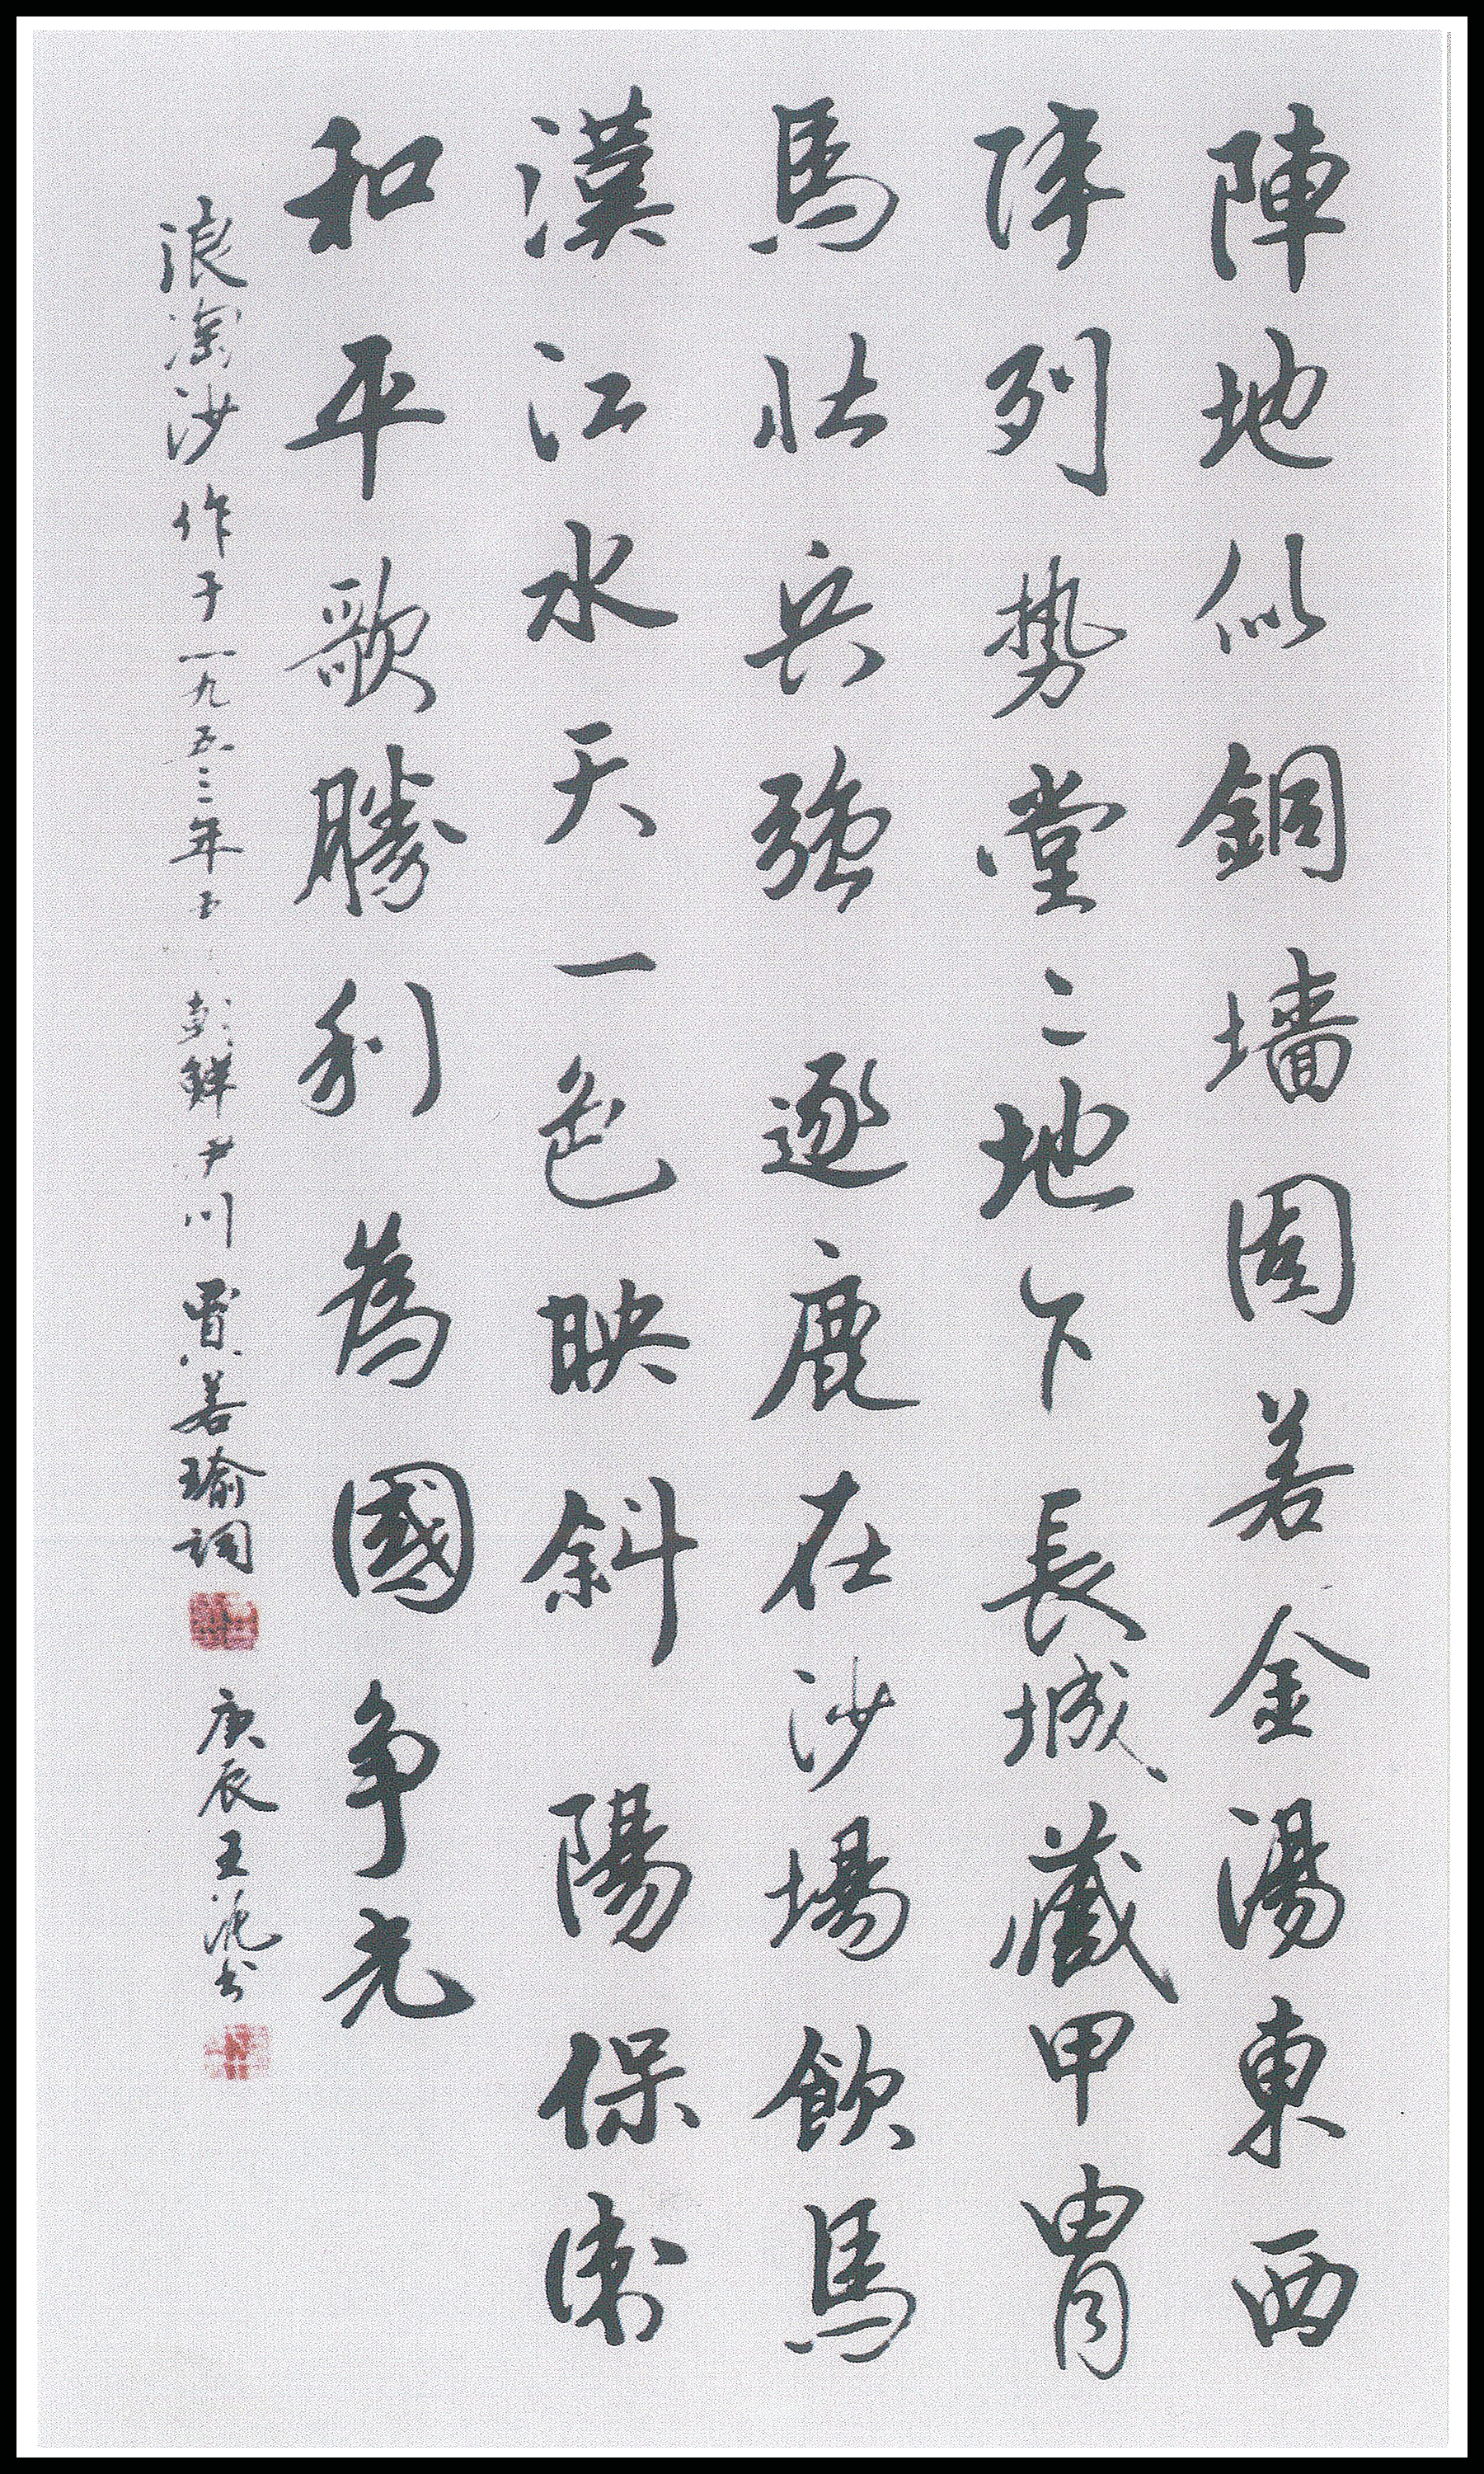 陣地似銅墻固若金湯東西
陣列势堂二地下長城藏甲胄
馬壮兵強逐鹿在沙場飲馬
漢江水天一色映斜陽保衛
和平歌勝利為國争光
浪淘沙作于一九五三年玉朝鮮尹川賈若瑜詞
庚辰王范书